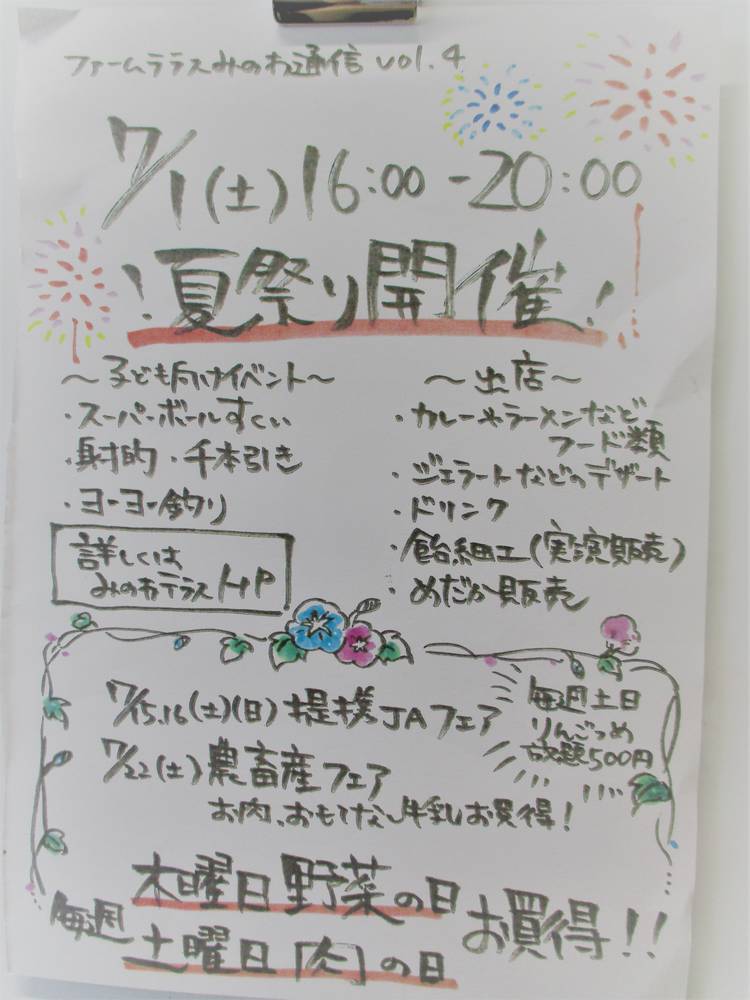 ファームテラスみのお通信 vol.4
7/1(土)16:00-20:00
!夏祭り開催!
~子ども向けイベント~
・スーパーボールすくい
・射的・千本引き
・ヨーヨー釣り
詳しくは
みのおテラスHP
~出店~
・カレーやラーメンなど
フード類
・ジェラートなどのデザート
・ドリンク
・飴細工(実演販売)
・めだか販売
7/15.16(土)(日)提携JAフェア
毎週土日
りんごつめ
放題500円
7/22(土)農畜産フェア
お肉、おもてなし牛乳お買得!
毎週
木曜日野菜の日
土曜日肉の日
お買得!!